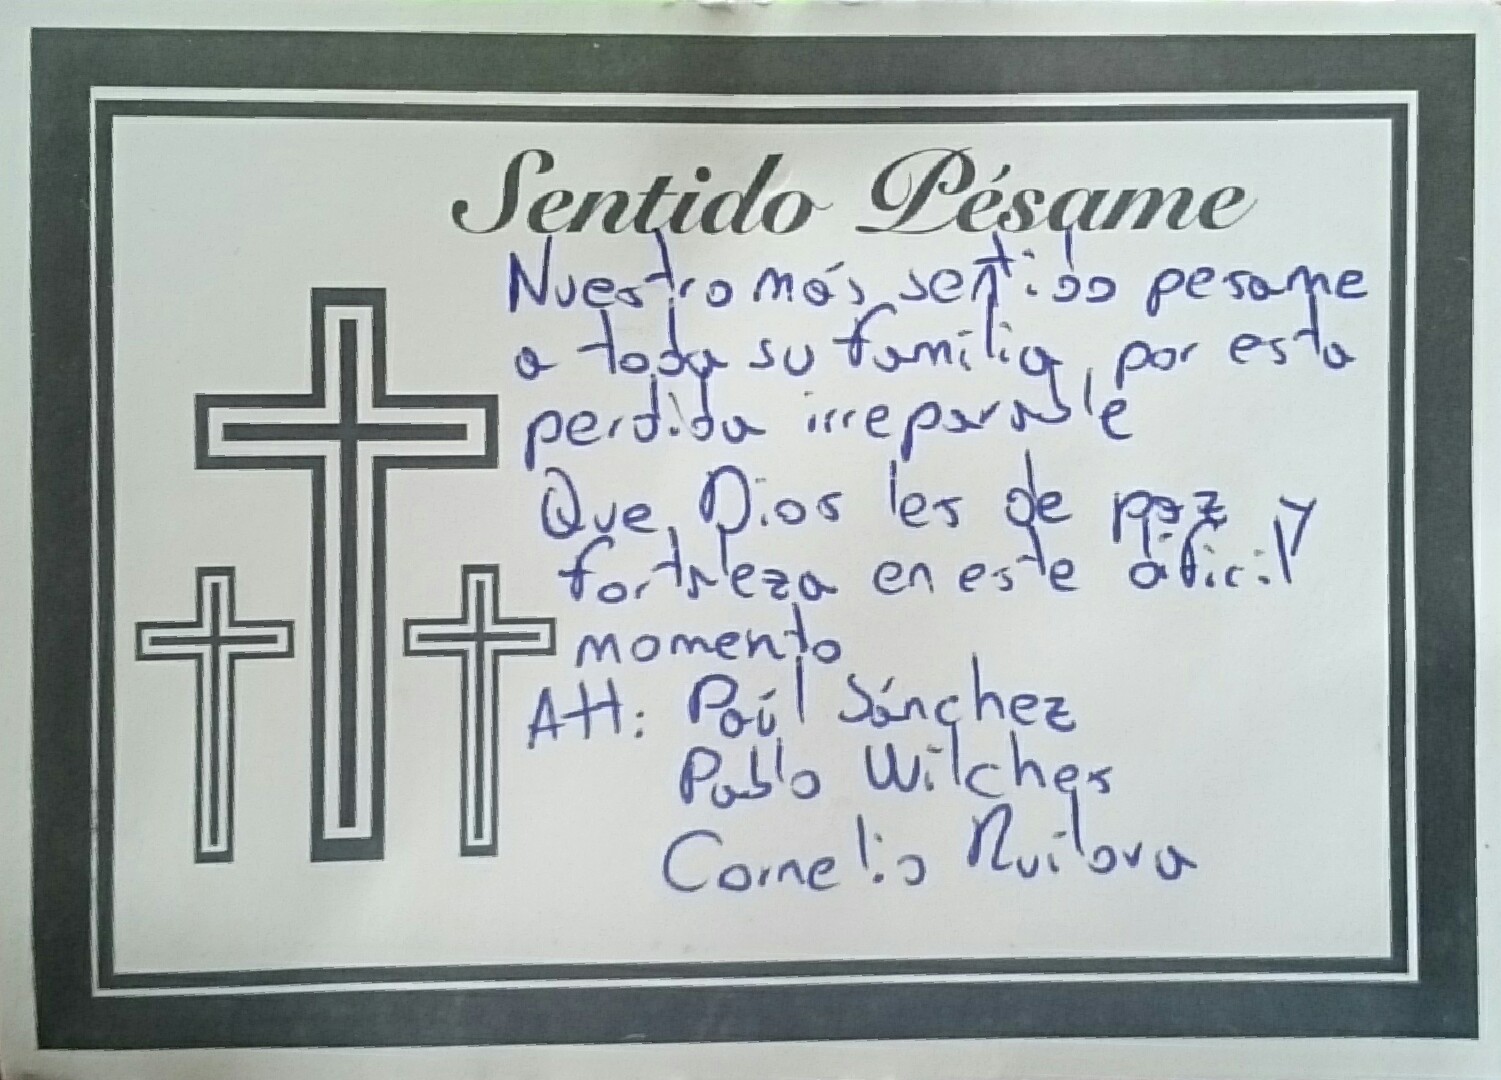 Sentido Pésame
Nuestro más sentido pesame
a toda su familia, por esta
perdida irreparable
Que Dios les de paz y
fortaleza en este dificil
momento
Att: Paúl Sánchez
Pablo Wilches
Cornelio Ruilova